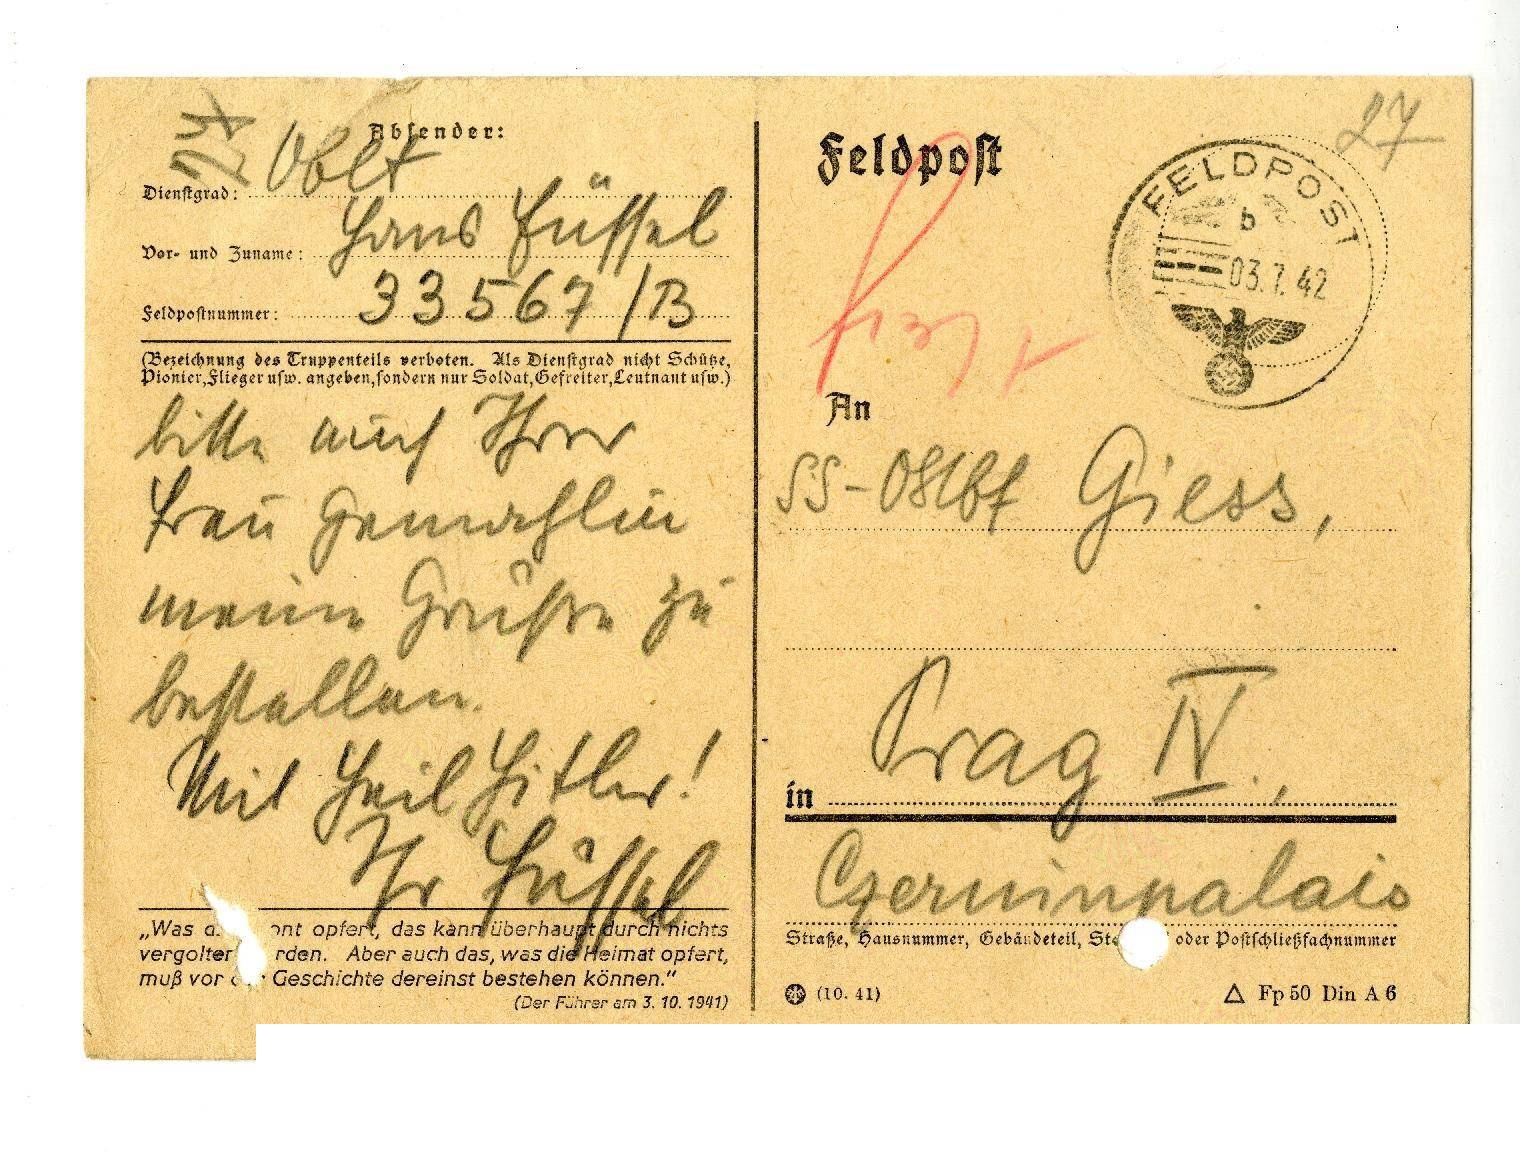 Absender:
Dienstgrad: Oblt
Vor- und Zuname: Hans Füssel
Feldpostnummer: 33567/B
(Bezeichnung des Truppenteils verboten. Als Dienstgrad nicht Schütze,
Pionier, Flieger usw. angeben, sondern nur Soldat, Gefreiter, Leutnant usw.)
bitte auch Ihrer
Frau Gemahlin
meine Grüße zu
bestellen.
Mit Heil Hitler!
Ihr Füssel
„Was d ont opfert, das kann überhaupt durch nichts
vergolten rden. Aber auch das, was die Heimat opfert,
muß vor d Geschichte dereinst bestehen können.“
(Der Führer am 3. 10. 1941)
27
Feldpost
FELDPOST
b
03.7.42
An
SS-Ostbf Giess,
in Prag IV.,
Czerninpalais
Straße, Hausnummer, Gebäudeteil, St oder Postschließfachnummer
(10. 41)
Fp 50 Din A 6